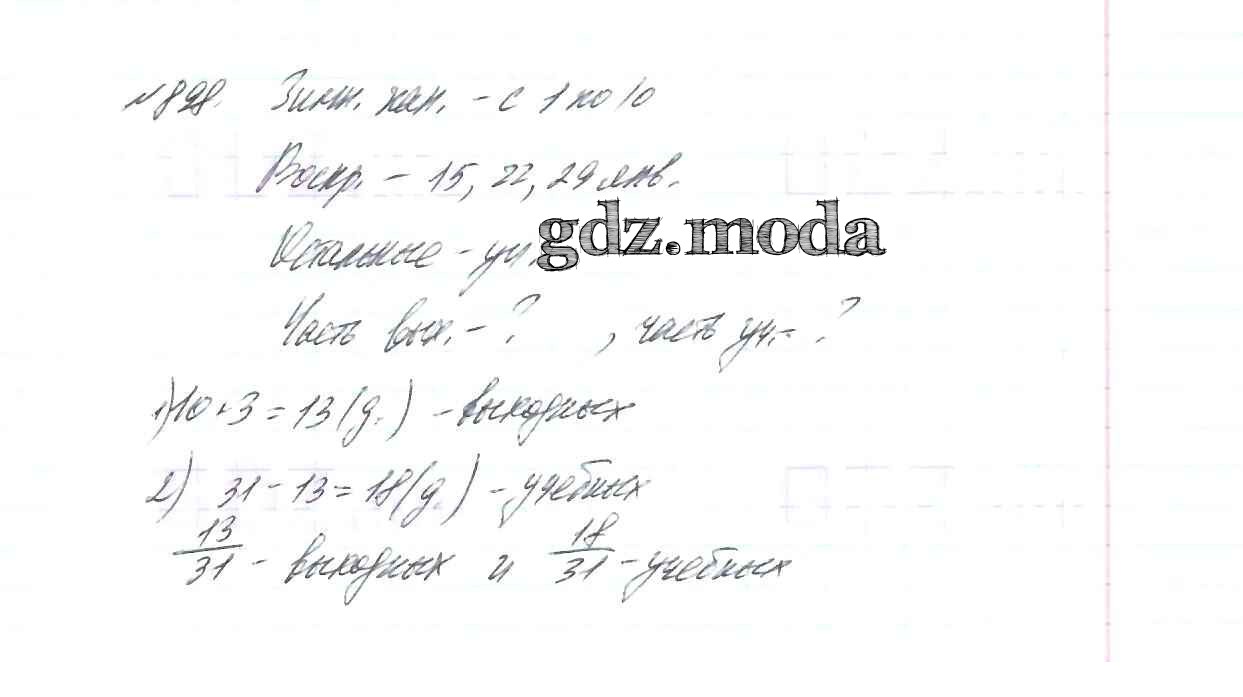 №898. Зимн. кан. - с 1 по 10
Воскр. - 15, 22, 29 янв.
Остальные - уч.
gdz.moda
Часть вых. - ? , часть уч. - ?
1) 10 + 3 = 13 (д.) - выходных
2) 31 - 13 = 18 (д.) - учебных
13/31 - выходных и 18/31 - учебных